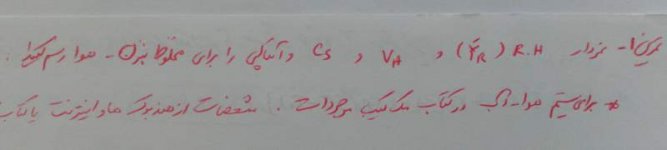 تمرین 1- نمودار R.H (Y̅R) و VH و CS و آنتالپی را برای مخلوط بنزن - هوا رسم کنید:
* برای سیستم هوا-آب در کتاب مک کیب موجود است. مشخصات از هندبوک ها و اینترنت یا کتاب